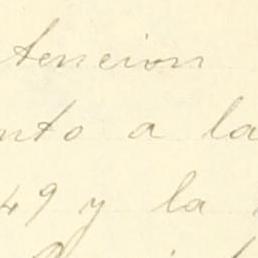 tencion
nto a la
49 y la